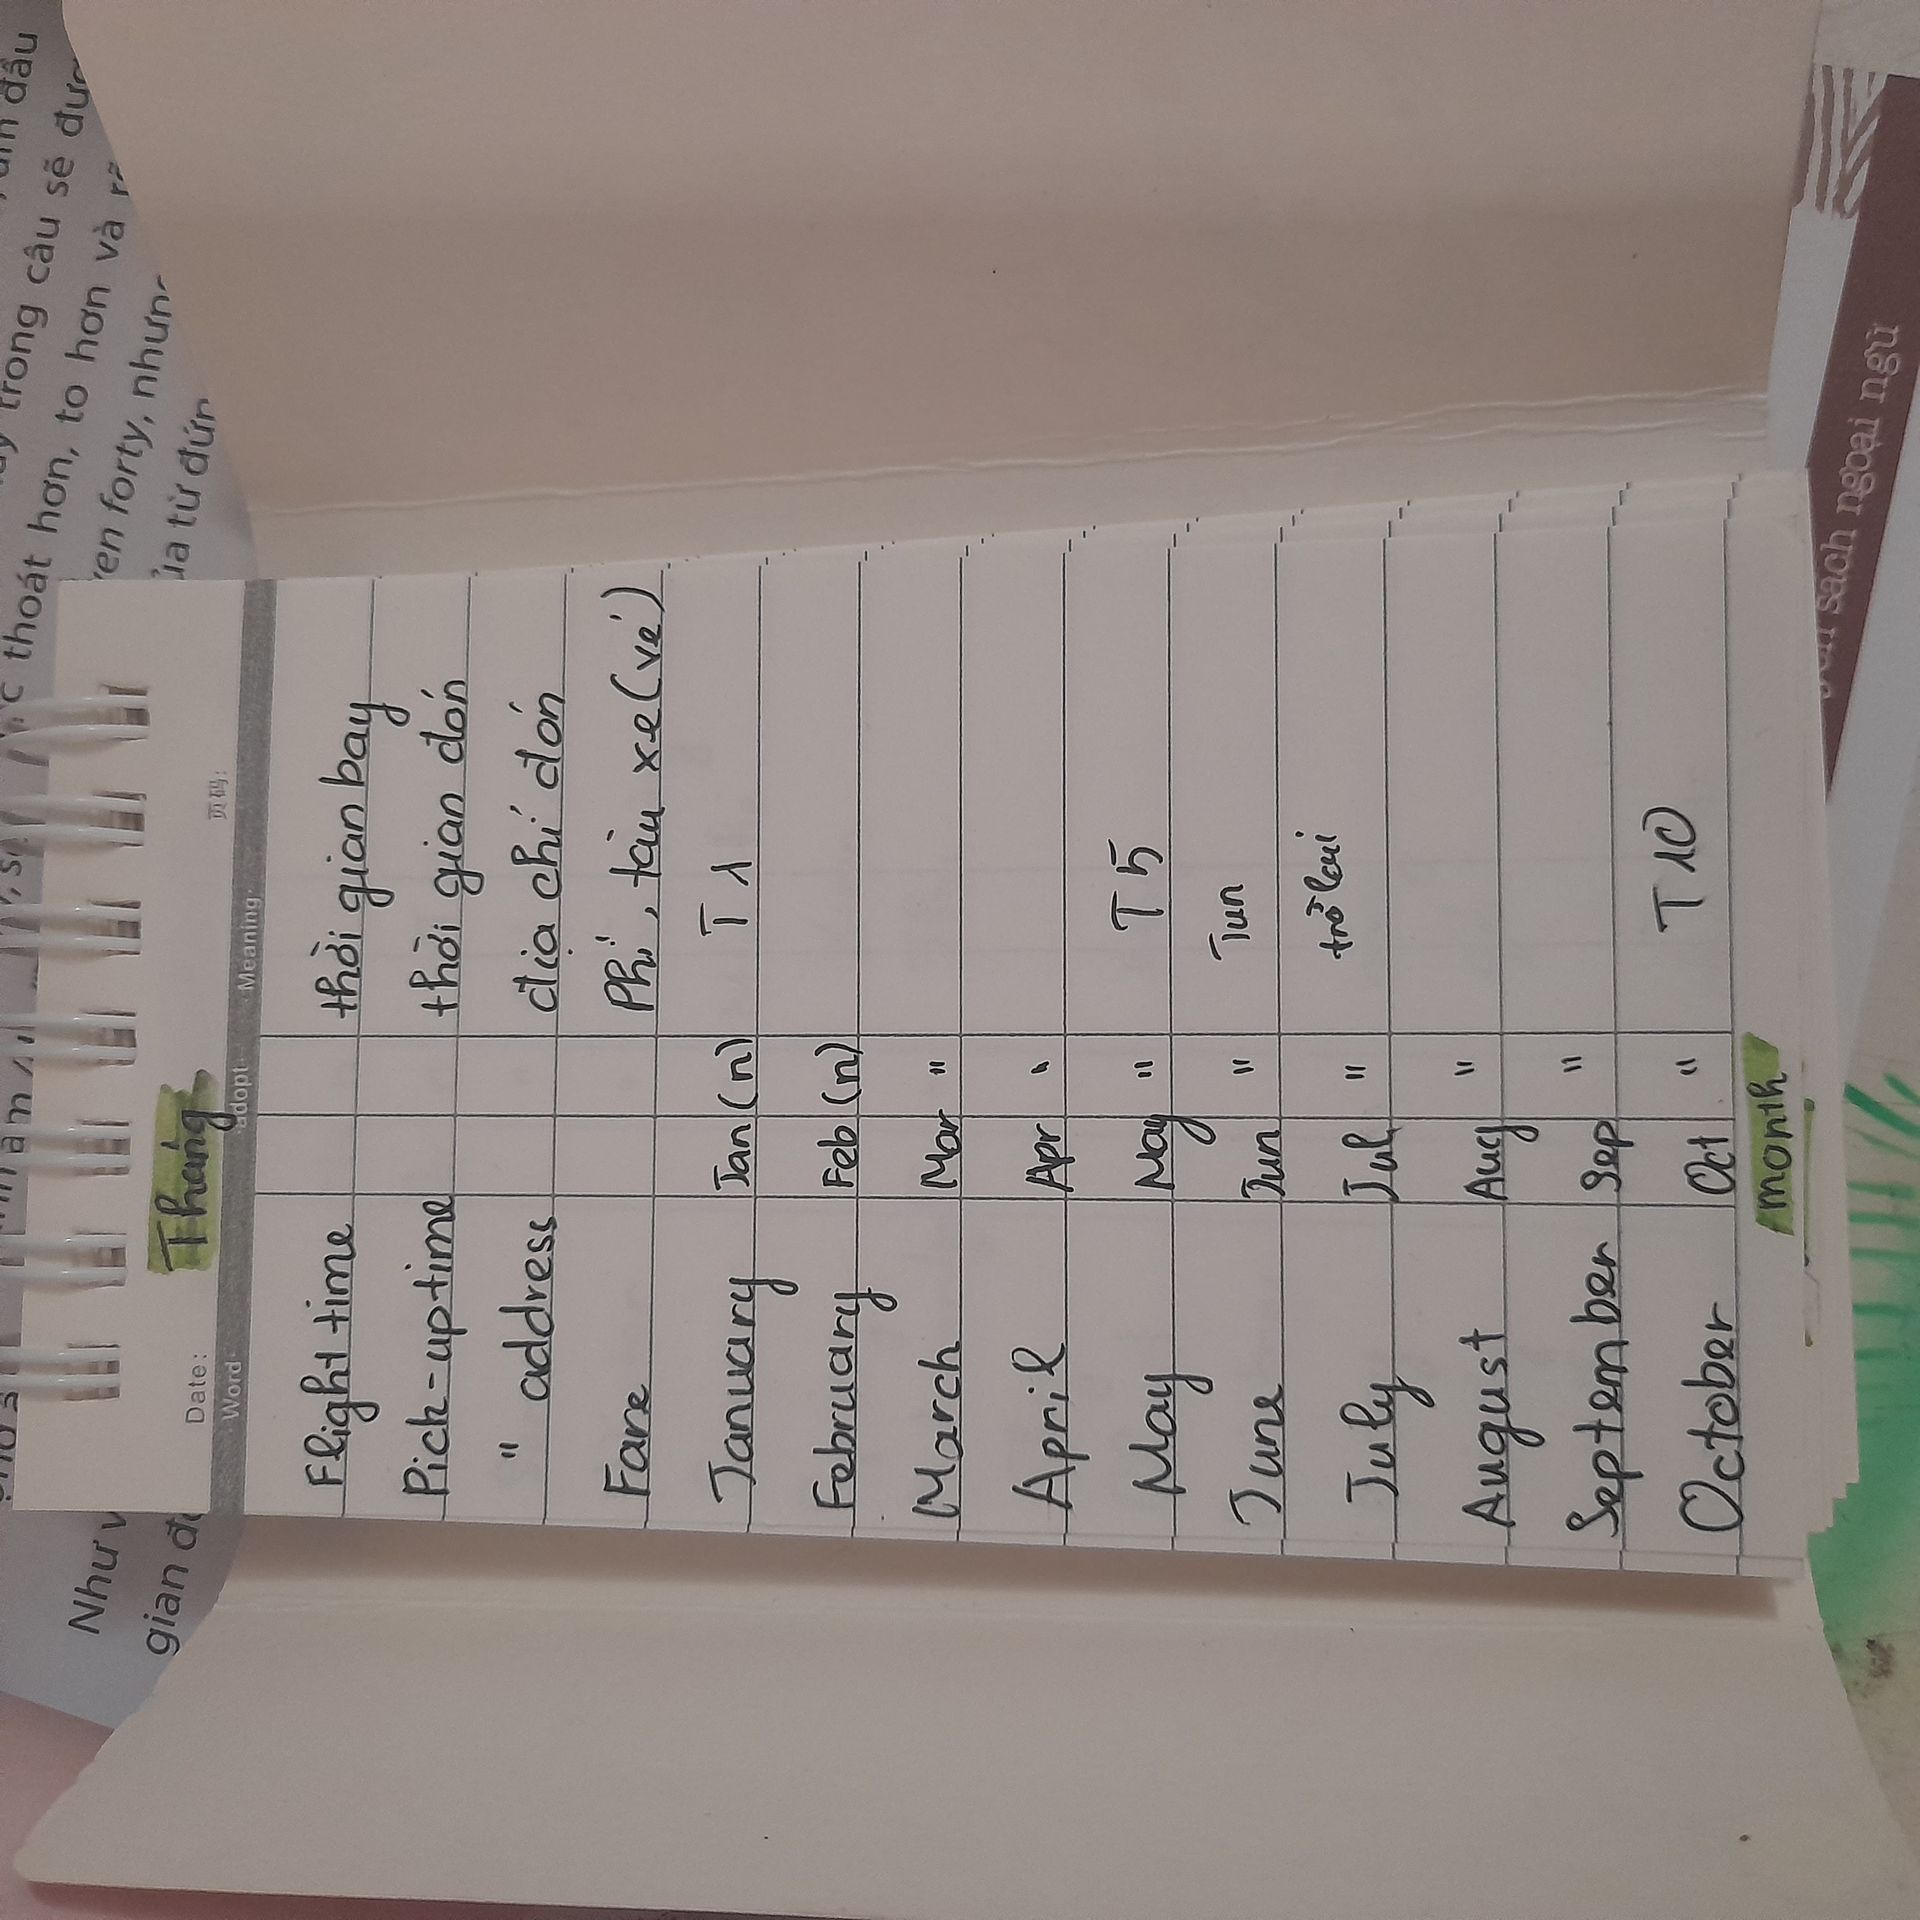 Tháng
Date: 页码:
Word: adopt Meaning:
Flight time thời gian bay
Pick-up time thời gian đón
" address địa chỉ đón
Fare Phí, tàu xe (vé)
January Jan (n) T1
February Feb (n)
March Mar "
April Apr "
May May " T5
June Jun " Jun
July Jul "
August Aug "
September Sep "
October Oct " T10
month
trong câu sẽ
thoát hơn, to hơn và
forty, như
từ
Như
gian
sách ngoại ngữ